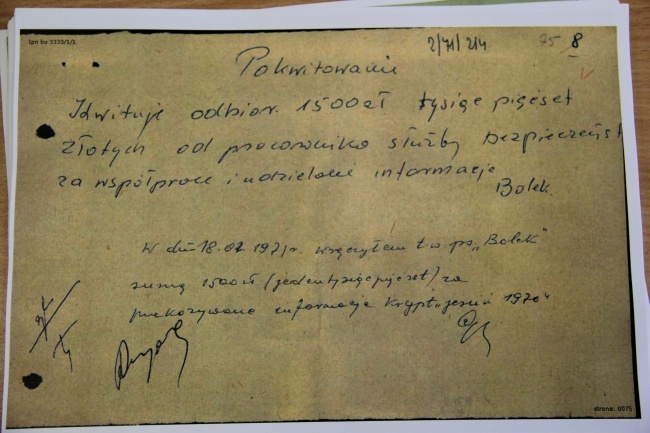 Ipn bu 3333/1/1
2/71/214 75 8
Pokwitowanie
Kwituję odbiór. 1500 zł tysiąc pięćset
złotych od pracownika służby bezpieczeńst
za współprace i udzielanie informacje
Bolek.
W dniu 18.01.1971r. wręczyłem t.w. ps. „Bolek"
sumę 1500 zł (jeden tysiąc pięćset) za
przekazywane informacje krypt. „jesień 1970"
strona: 0075